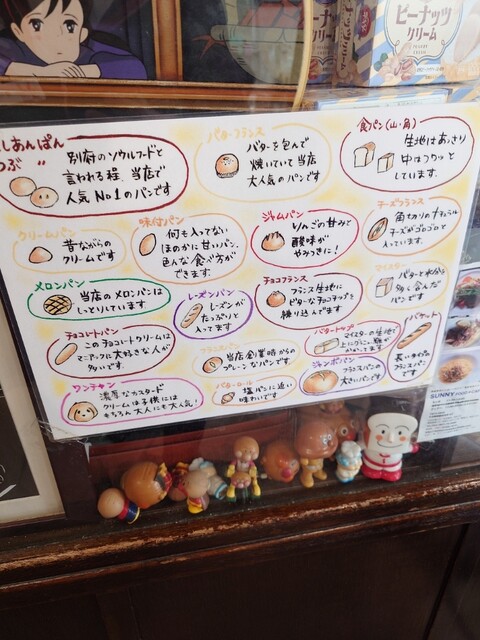 ピーナッツ
クリーム
しあんぱん
つぶ 〃
別府のソウルフードと
言われる程、当店で
人気No1のパンです
バターフランス
バターを包んで
焼いていて当店
大人気のパンです
食パン(山・角)
生地はあっさり
中はフワッと
しています。
クリームパン
昔ながらの
クリームです
味付パン
何も入ってない
ほのかに甘いパン。
色んな食べ方が
できます。
ジャムパン
りんごの甘みで
酸味が
やみつきに!
チーズフランス
角切りのナチュラル
チーズがゴロゴロと
入っています。
メロンパン
当店のメロンパンは
しっとりしています
レーズンパン
レーズンが
たっぷりと
入ってます
チョコフランス
フランス生地に
ビターなチョコチップを
練り込んでます
マイスター
バターと水分を
多く含んだ
パンです
チョコレートパン
このチョコレートクリームは
マニアックに大好きな人が
多いです。
フランスパン
当店創業時からの
プレーンなパンです
バタートップ
マイスターの生地で
バケット
長い本格
フランスパン
です
ワンチャン
濃厚なカスタード
クリームは子供には
もちろん大人にも大人気!
バターロール
塩パンに近い
味わいです
ジャンボパン
フランスパンの
大きいパンです
SUNNY